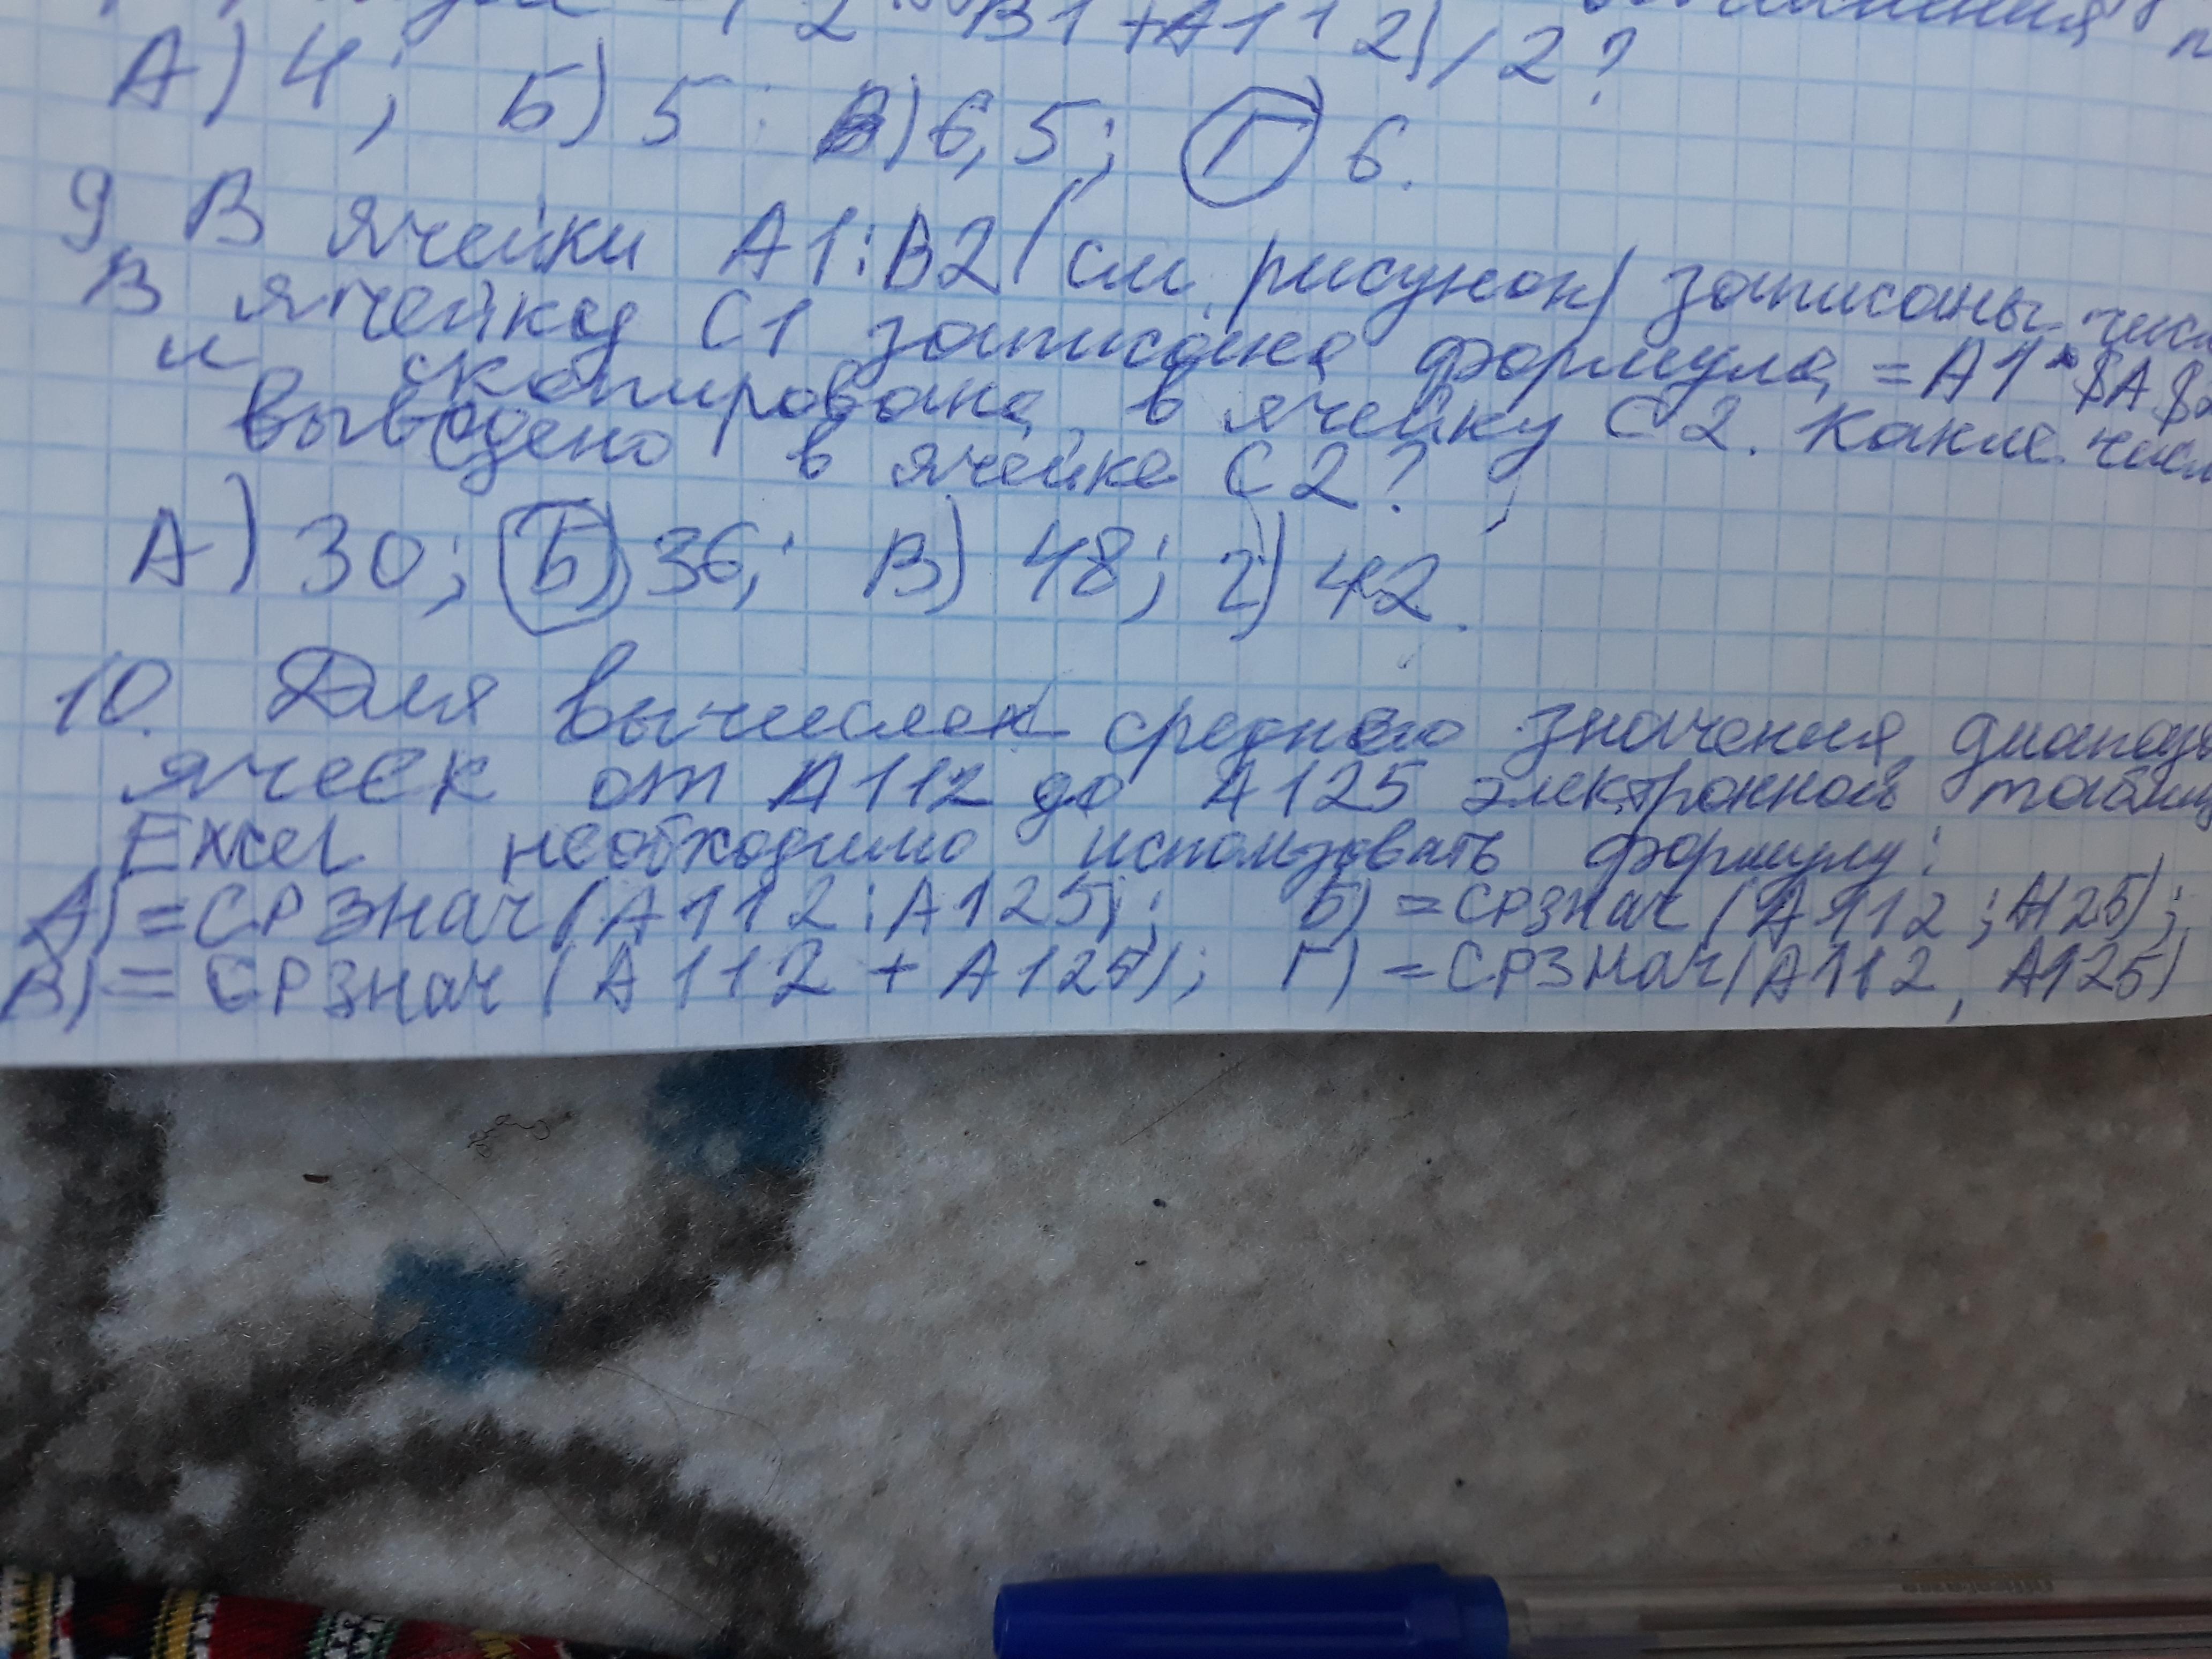 2 B1+A112)/2?
А) 4; Б) 5 В) 6,5; Г) 6.
9 В ячейки A1:B2 (см. рисунок) записаны
В ячейку C1 записана формула =A1*$A$2
и скопирована в ячейку C2. Какие
выведено в ячейке C2?
А) 30; Б) 36; В) 48; г) 42.
10. Для вычислен среднего значения
ячеек от A112 до A125 электронной
Excel необходимо использовать формулу:
А) =СРЗнач(A112:A125); Б) =СРЗнач(A112;A125);
В) =СРЗнач(A112+A125); Г) =СРЗнач(A112, A125)